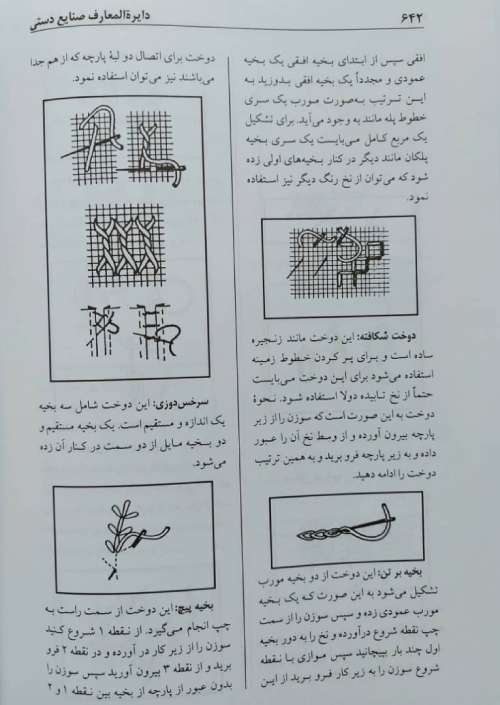 ۶۴۲
دایرةالمعارف صنایع دستی
افقی سپس از ابتدای بخیه افقی یک بخیه
عمودی و مجدداً یک بخیه افقی بدوزید به
این ترتیب به‌صورت مورب یک سری
خطوط پله مانند به وجود می‌آید. برای تشکیل
یک مربع کامل می‌بایست یک سری بخیه
پلکان مانند دیگر در کنار بخیه‌های اولی زده
شود که می‌توان از نخ رنگ دیگر نیز استفاده
نمود.
دوخت شکافته: این دوخت مانند زنجیره
ساده است و برای پر کردن خطوط زمینه
استفاده می‌شود برای این دوخت می‌بایست
حتماً از نخ تابیده دولا استفاده شود. نحوهٔ
دوخت به این صورت است که سوزن را از زیر
پارچه بیرون آورده و از وسط نخ آن را عبور
داده و به زیر پارچه فرو برید و به همین ترتیب
دوخت را ادامه دهید.
بخیه بر تن: این دوخت از دو بخیه مورب
تشکیل می‌شود به این صورت که یک بخیه
مورب عمودی زده و سپس سوزن را از سمت
چپ نقطه شروع درآورده و نخ را به دور بخیه
اول چند بار بپیچانید سپس موازی با نقطه
شروع سوزن را به زیر کار فرو برید از این
دوخت برای اتصال دو لبهٔ پارچه که از هم جدا
می‌باشند نیز می‌توان استفاده نمود.
سرخس‌دوزی: این دوخت شامل سه بخیه
یک اندازه و مستقیم است. یک بخیه مستقیم و
دو بخیه مایل از دو سمت در کنار آن زده
می‌شود.
بخیه پیچ: این دوخت از سمت راست به
چپ انجام می‌گیرد. از نقطه ۱ شروع کنید
سوزن را از زیر کار در آورده و در نقطه ۲ فرو
برید و از نقطه ۳ بیرون آورید سپس سوزن را
بدون عبور از پارچه از بخیه بین نقطه ۱ و ۲